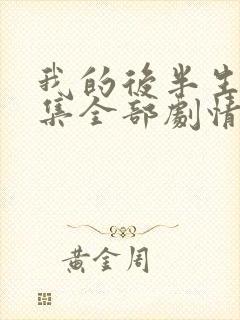 我的後半生
集全部劇情
黃金周